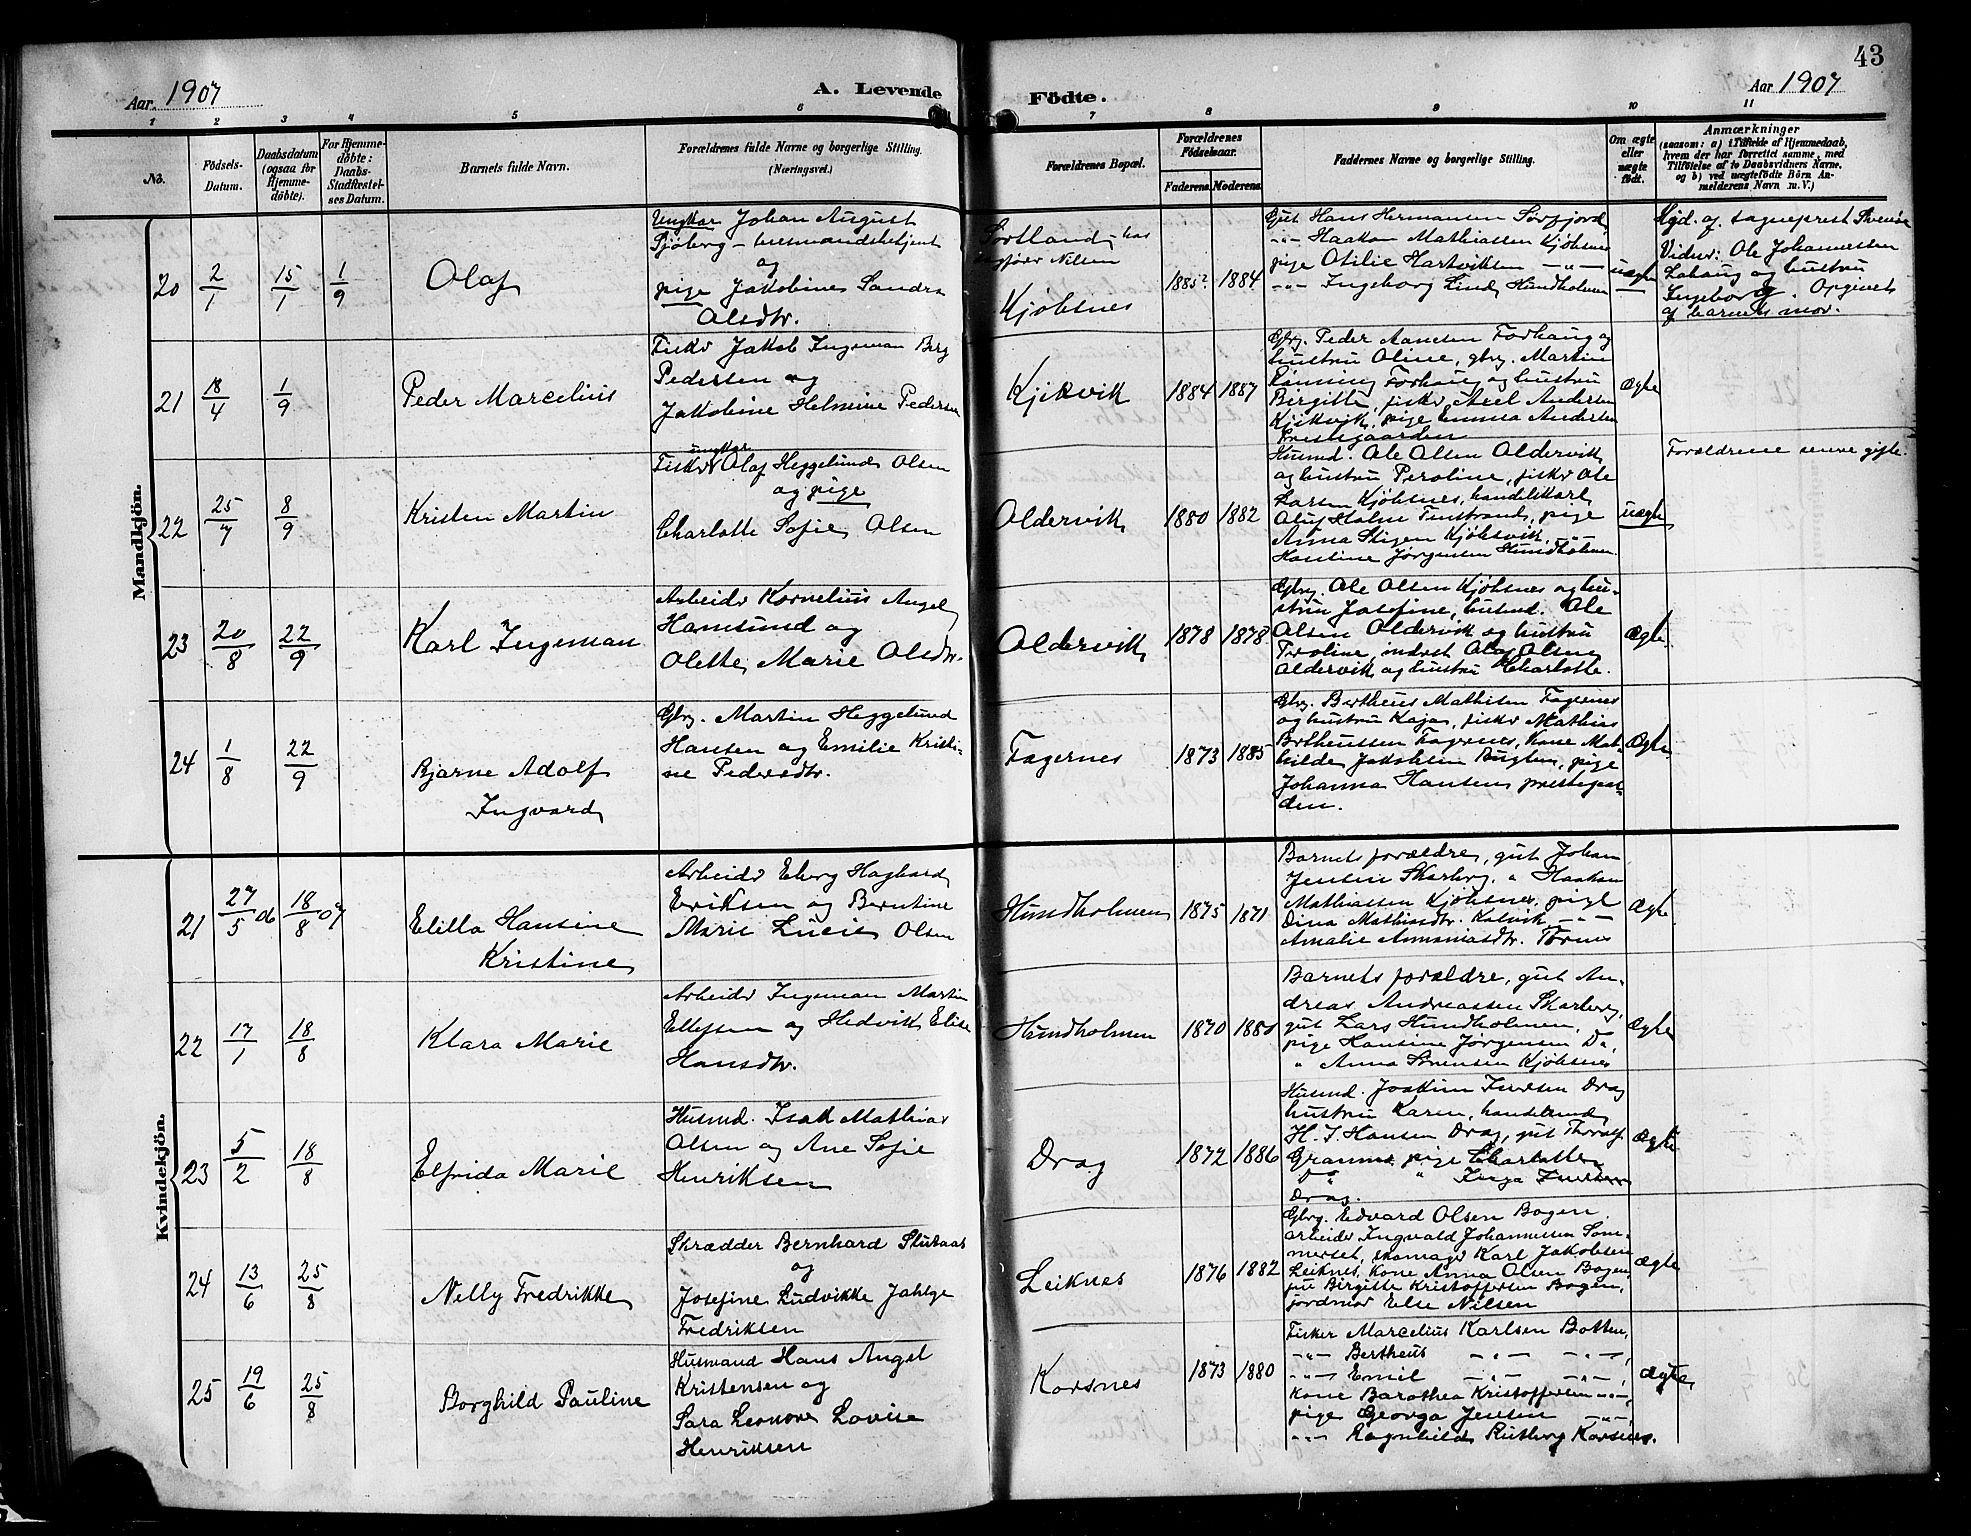 43
Aar 1907
A. Levende Födte.
Aar 1907
1 2 3 4 5 6 7 8 9 10 11
No.
Födsels-Datum.
Daabsdatum (ogsaa for Hjemme-döbte).
For Hjemme-döbte: Daabs-Stadfæstel-ses Datum.
Barnets fulde Navn.
Forældrenes fulde Navne og borgerlige Stilling. (Næringsvei.)
Forældrenes Bopæl.
Forældrenes Födselsaar.
Faderens. Moderens.
Faddernes Navne og borgerlige Stilling.
Om ægte eller uægte födt.
Anmærkninger
(saasom: a) i Tilfælde af Hjemmedaab,
hvem der har forrettet samme, med
Tilföielse af to Daabsvidners Navne.
og b) ved uægtefödte Börn An-
melderens Navn m. V.)
Mandkjön.
20 2/1 15/1 1/9
Olaf
Ungkar Johan August
Sjöberg – lensmandsbetjent
og
pige Jakobine Sandra
Olsdtr.
Sortland, hos
Nilsen
Kjøbsnes
1885? 1884
Gut Hans Hermansen Sørfjord
-"- Haakon Mathiassen Kjøbsnes
pige Otilie Hartviksen -"-
-"- Ingeborg Lind, Hundholmen
uægte
Hjd. af sogneprest
Vidner: Ole Johannessen
og hustru
Ingeborg. Opgivet
af barnets mor.
21 18/4 1/9
Peder Marcelius
Fisker Jakob Ingeman Berg
Pedersen og
Jakobine Helmine Pedersen
Kjikvik
1884 1887
Gbrg. Peder Aanesen Forhaug og
hustru Oline, gbrg. Martin
Rønning Forhaug og hustru
Birgitte, fisker Axel Andersen
Kjikvik, pige Emma Andersen
Prestegaarden
Ægte
22 25/7 8/9
Kristen Martin
ungkar
Fisker Olaf Heggelund Olsen
og pige
Charlotte Sofie Olsen
Oldervik
1880 1882
Husmd. Ole Olsen Oldervik
og hustru Peroline, fisker Ole
Larsen Kjøbsnes, handelskarl
Oluf Holm Tenstrand, pige
Anna Stigen Kjøbsvik, -"-
Hansine Jørgensen Hundholmen
uægte
Forældrene senere gifte.
23 20/8 22/9
Karl Ingeman
Arbeider Kornelius Angel
Hamsund og
Olette Marie Olsdtr.
Oldervik
1878 1878
Gbrg. Ole Olsen Kjøbsnes og hu-
stru Josefine, husmd. Ole
Olsen Oldervik og hustru
Peroline, inderst Olaf Olsen
Oldervik og hustru Charlotte.
Ægte
24 1/8 22/9
Bjarne Adolf
Ingvard
Gbrg. Martin Heggelund
Hansen og Emilie Kristi-
ne Pedersdtr.
Fagernes
1873 1885
Gbrg. Bertheus Mathisen Fagernes
og hustru Kaja, fisker Mathias
Bertheussen Fagernes, Kone Mat-
hilde Jakobsen Rugten, pige
Johanna Hansen prestegaar-
den.
Ægte
Kvindekjön.
21 27/5 06 18/8 07
Elilla Hansine
Kristine
Arbeider Eberg Hagbard
Eriksen og Berntine
Marie Lucie Olsen
Hundholmen
1875 1871
Barnets forældre, gut Johan
Jensen Skarberg, " Haakon
Mathiassen Kjøbsnes, pige
Dina Mathiasdtr. Kalvik -"-
Amalie Annaniasdtr. Tørnes
Ægte
22 17/1 18/8
Klara Marie
Arbeider Ingeman Martin
Ellefsen og Hedvik Elise
Hansdtr.
Hundholmen
1870
Barnets forældre, gut An-
dreas Andreassen Skarberg,
gut Lars Hundholmen,
pige Hansine Jørgensen Do,
" Anna Sørensen Kjøbsnes
Ægte
23 5/2 18/8
Elfrida Marie
Husmd. Isak Mathias
Olsen og Ane Sofie
Henriksen
Drag
1872 1886
Husmd. Joakim Iversen Drag
hustru Karen, handelsmd.
H. J. Hansen Drag, gut Thoralf
Gransnes, pige Charlotte
Do " Inga Iversen
Drag.
Ægte
24 13/6 25/8
Nelly Fredrikke
Skrædder Bernhard
og
Josefine Ludvikke
Fredriksen
Leiknes
1876 1882
Gbrg. Edvard Olsen Bogen,
arbeider Ingvald Johannessen Som-
merset, skomager Karl Jakobsen
Leiknes, Kone Anna Olsen Bogen,
pige Birgitte Kristoffersen Bogen,
jordmor Else Nilsen
Ægte
25 19/6 25/8
Borghild Pauline
Husmand Hans Angel
Kristensen og
Sara Leonora Lovise
Henriksen
Korsnes
1873 1880
Fisker Marcelius Karlsen Botten,
-"- Bertheus -"- -"-,
-"- Emil -"- -"-,
Kone Barothea Kristoffersen -"-,
pige Georga Jensen -"-,
-"- Ragnhild Rutberg Korsnes.
ægte